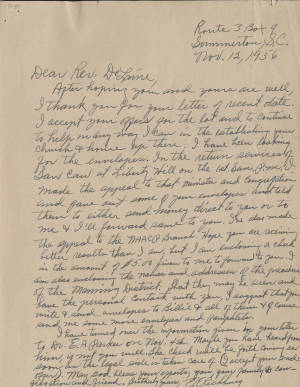 Route 3 Box 9
Summerton, S.C.
Nov. 12, 1956
Dear Rev. DeLaine,
After hoping you and yours are well,
I thank you for your letter of recent date.
I accept your offer for the lot and to continue
to help in any way I can in the establishing your
church & home up there, I have been looking
for the envelopes. In the return services of
at Liberty Hill on the 1st Sun.
made the appeal to that minister and congregation
and gave out some of your envelopes and told
them to either send money direct to you or to
me & I'll forward same to you. I've also made
the appeal to the NAACP Branch. Hope you are receiving
better results than I am, but I am enclosing a check
in the amount of $5.00 given to me to forward to you. I
am also enclosing the names and addresses of the preachers
of the Manning District. That they may be seen and
have the personal contact with you, I suggest that you
write & send envelopes to
send me some more envelopes and pamphlets.
I have turned over the information given by your letter
to
how, if not you will. The check will be forth coming as
soon as the legal side is taken care of.
you! May God bless your
and friend,